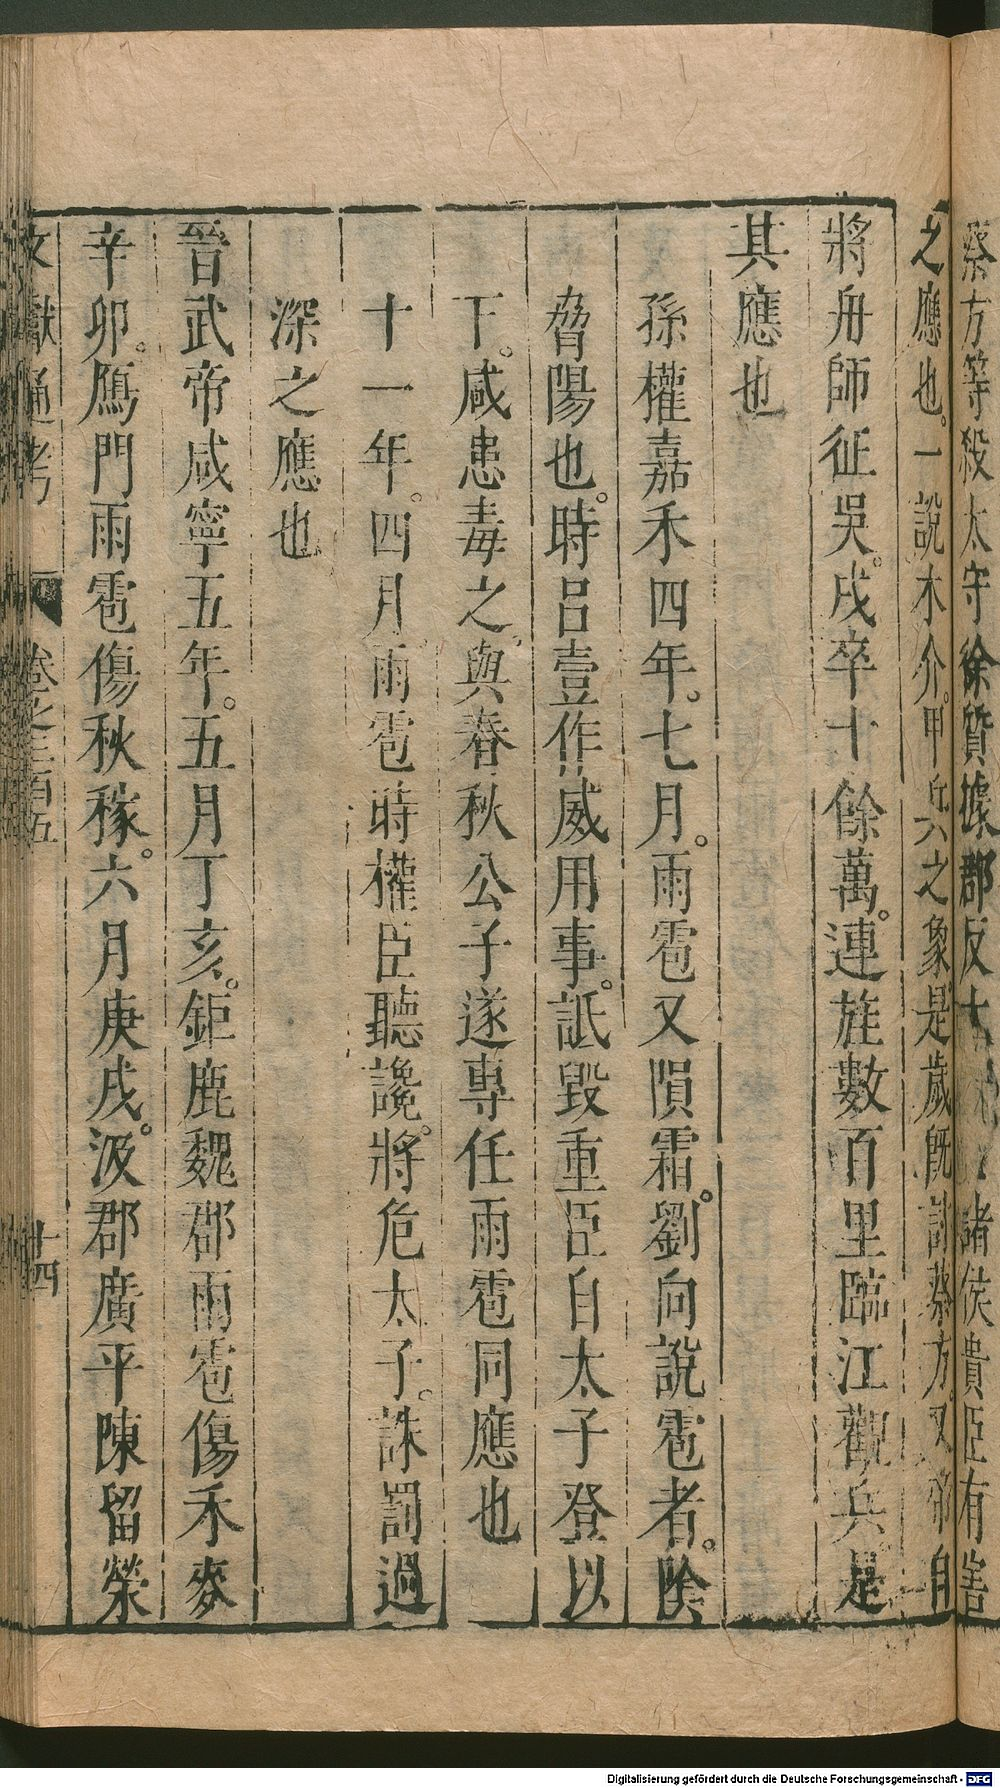 蔡方等殺太守徐質據郡反大諸侯貴臣有害
之應也。一說木介。甲兵之象。是歲旣討蔡方。又帝自
將舟師征吳。戌卒十餘萬。連旌數百里臨江觀兵是
其應也
孫權嘉禾四年。七月。雨雹又隕霜。劉向說雹者。陰
脅陽也。時呂壹作威用事。詆毀重臣自太子登以
下。咸患毒之。與春秋公子遂專任雨雹同應也
十一年。四月。雨雹時權臣聽讒。將危太子。誅罰過
深之應也
晉武帝咸寧五年。五月丁亥。鉅鹿魏郡雨雹傷禾麥
辛卯。鴈門雨雹傷秋稼。六月庚戌。汲郡廣平陳留滎
文獻通考 卷之三百五 十四
Digitalisierung gefördert durch die Deutsche Forschungsgemeinschaft - DFG